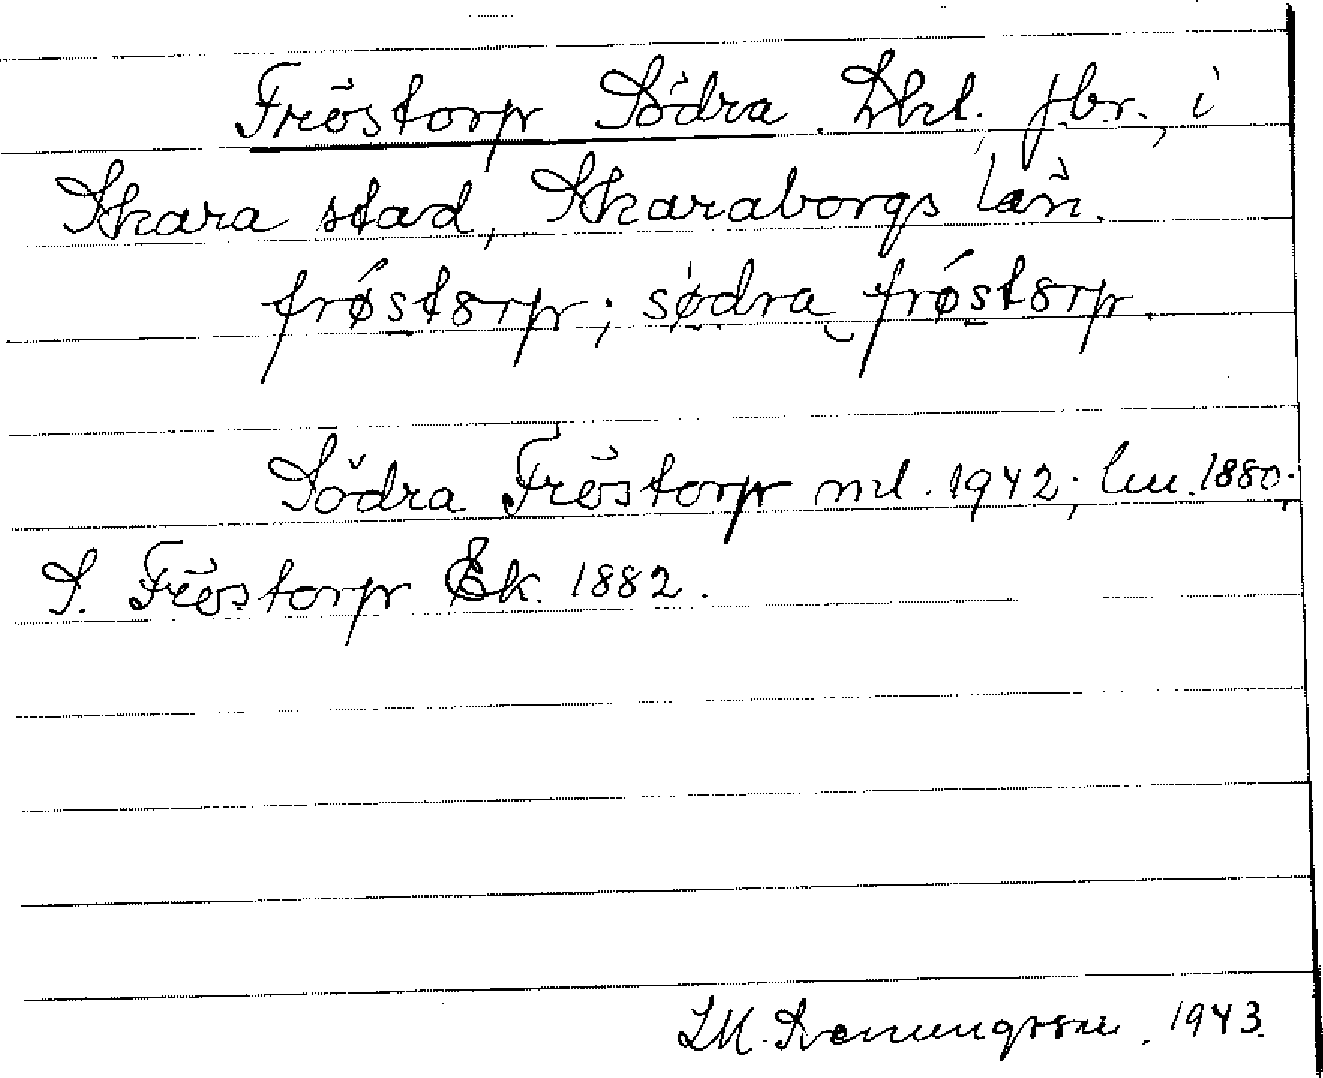 Fröstorp Södra Lht. jbr., i
Skara stad, Skaraborgs län.
frøstorp; sødra frøstorp.
Södra Fröstorp ml. 1942; lm. 1880;
S. Fröstorp Ek. 1882.
1943.